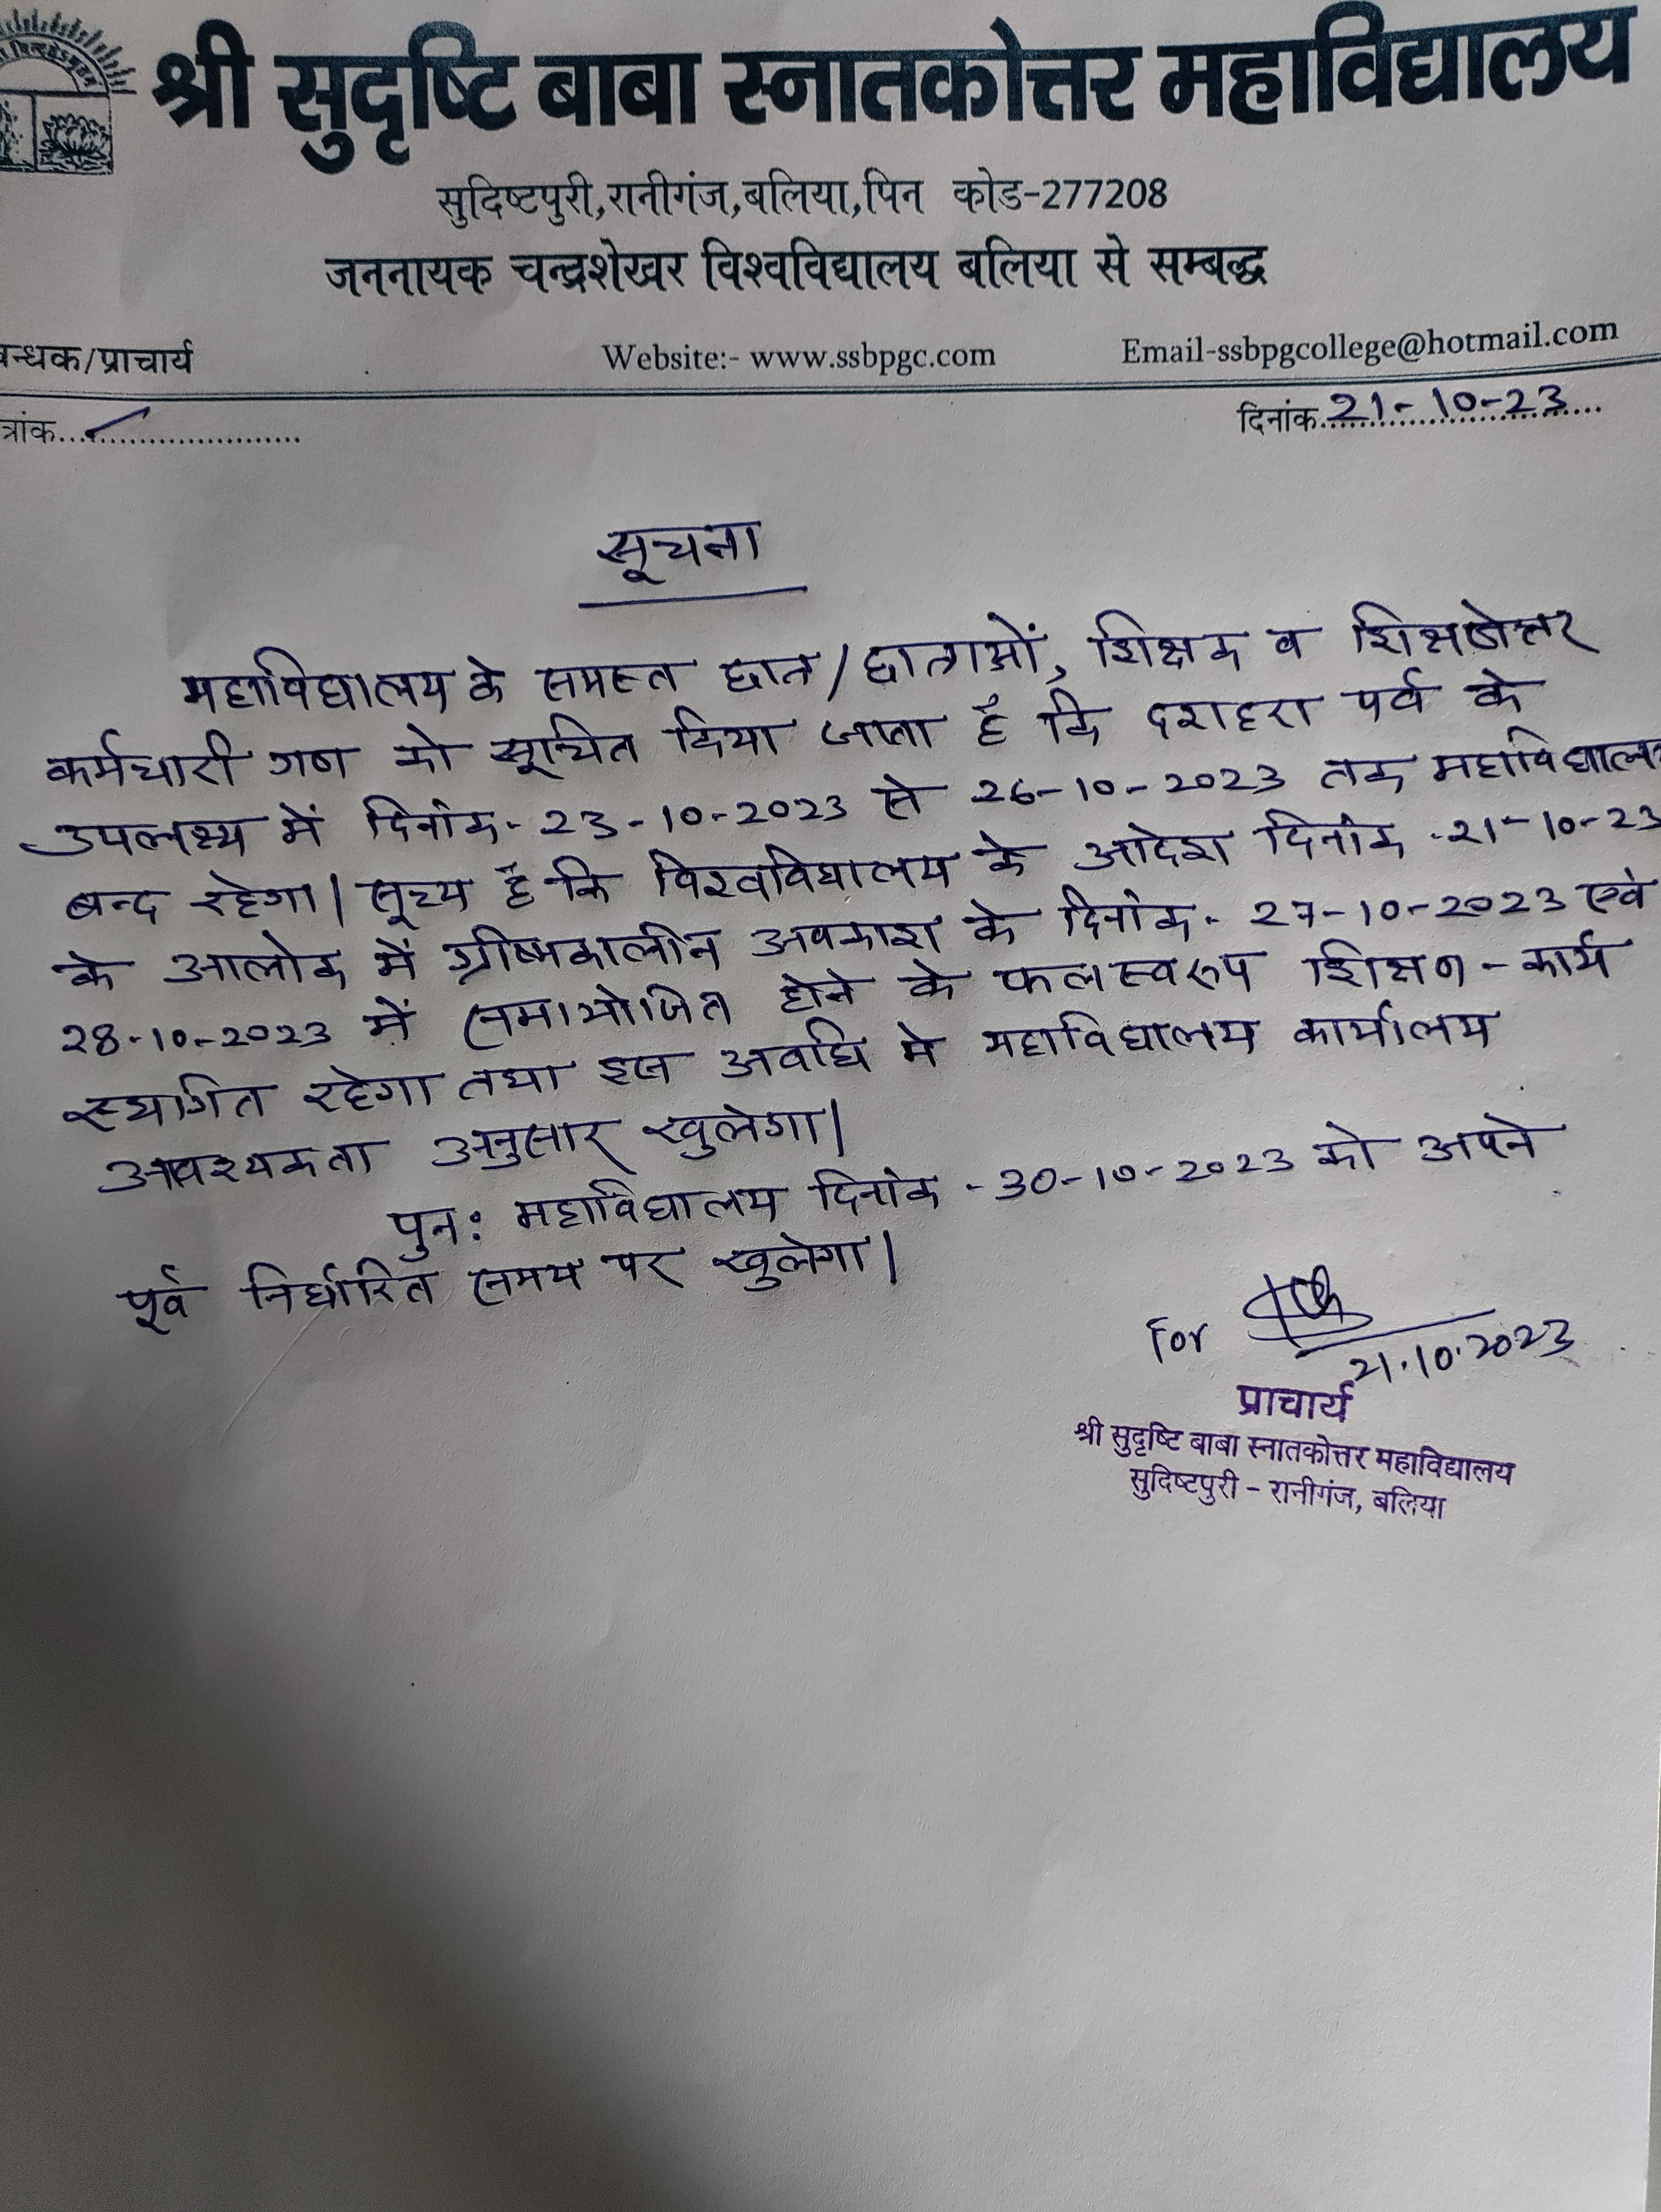 श्री सुदृष्टि बाबा स्नातकोत्तर महाविद्यालय
सुदिष्टपुरी,रानीगंज,बलिया,पिन कोड-277208
जननायक चन्द्रशेखर विश्वविद्यालय बलिया से सम्बद्ध
बन्धक/प्राचार्य Website:- www.ssbpgc.com Email-ssbpgcollege@hotmail.com
त्रांक........................... दिनांक.21-10-23....
सूचना
महाविद्यालय के समस्त छात्र/छात्राओं, शिक्षक व शिक्षणेत्तर
कर्मचारी गण को सूचित किया जाता है कि दशहरा पर्व के
उपलक्ष्य में दिनांक- 23-10-2023 से 26-10-2023 तक महाविद्यालय
बन्द रहेगा| सूच्य है कि विश्वविद्यालय के आदेश दिनांक -21-10-23
के आलोक में ग्रीष्मकालीन अवकाश के दिनांक- 27-10-2023 एवं
28-10-2023 में समायोजित होने के फलस्वरुप शिक्षण-कार्य
स्थगित रहेगा तथा इस अवधि मे महाविद्यालय कार्यालय
आवश्यकता अनुसार खुलेगा|
पुन: महाविद्यालय दिनांक -30-10-2023 को अपने
पूर्व निर्धारित समय पर खुलेगा|
For
21.10.2023
प्राचार्य
श्री सुदृष्टि बाबा स्नातकोत्तर महाविद्यालय
सुदिष्टपुरी - रानीगंज, बलिया